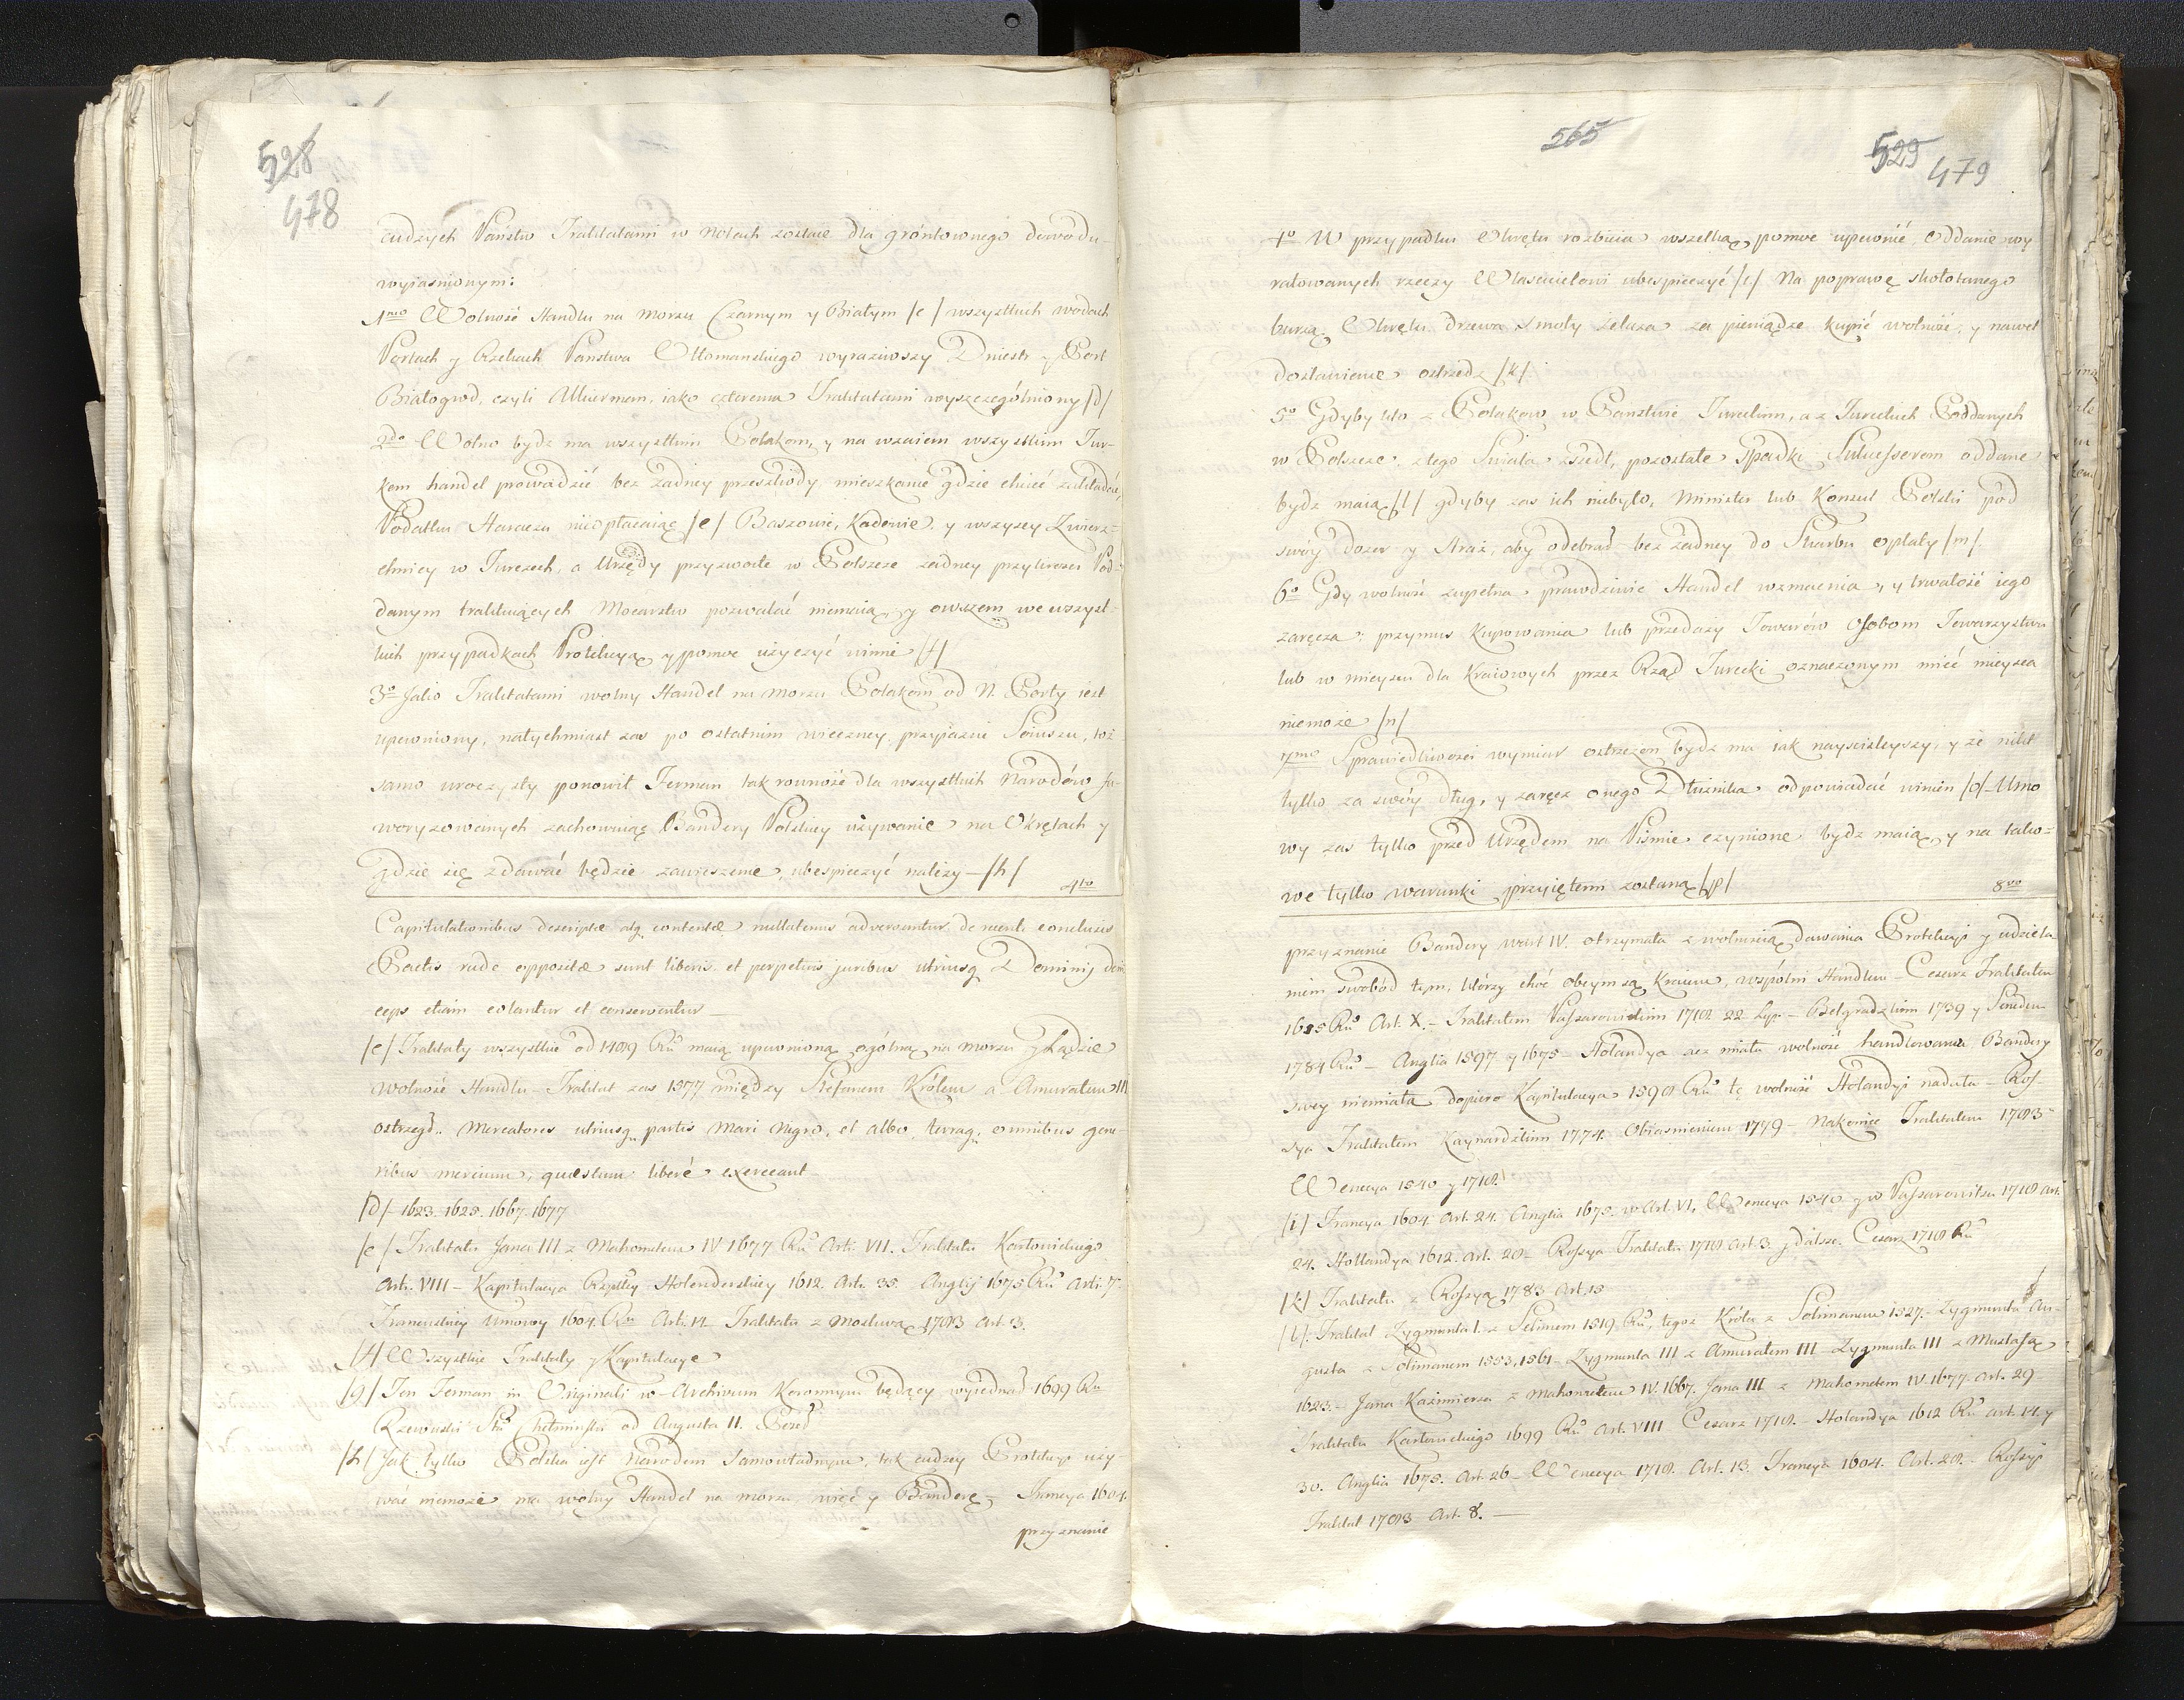 528
478
cudzych Państw Traktatami w Notach zostaie dla gróntownego dowodu
wyiasnionym:
1mo Wolność Handlu na morzu Czarnym y Białym /c/ wszystkich wodach
Portach y Rzekach Państwa Ottomanskiego wyraziwszy Dniestr y Port
Białogrod, czyli Akierman, iako czterema Traktatami wyszczególniony /d/
2do Wolno bydz ma wszystkim Polakom, y na wzaiem wszystkim Tur-
kom handel prowadzić bez żadney przeszkody mieszkanie gdzie chcieć zakładać,
Podatku Haraczu nieopłacaiąc /e/ Baszowie, Kadowie y wszyscy Zwierz-
chnicy w Turczech, a Urzędy przyzwoite w Polszcze żadney przykrości Pod-
danym traktuiących Mocarstw pozwalać niemaią, y owszem we wszyst-
kich przypadkach Protekcyą y pomoc użyczyć winni /f/
3o Jako Traktatami wolny Handel na morzu Polakom od N. Porty iest
upewniony, natychmiast zas po ostatnim wieczney przyiazni Soiuszu, toż
samo uroczysty ponowił Ferman tak rowność dla wszystkich Narodów fa-
woryzowanych zachowuiąc Bandery Polskiey używanie na Okrętach y
gdzie się zdawać będzie zawieszenie, ubespieczyć należy - /h/
4to
Capitulationibus descriptæ atq contentæ nullatenus adversantur de novo conclusis
Pactis rude oppositæ sunt liberis et perpetuis juribus utriusq Dominij dein
ceps etiam colantur et conserventur -
/c/ Traktaty wszystkie od 1489 Ru maią upewnioną ogólną na morzu y Lądzie
wolność Handlu - Traktat zas 1577 między Stefanem Królem a Amuratem III
ostrzegł: Mercatores utriusq partis Mari Nigro, et albo, terraq. omnibus gene-
ribus mercium, quæstum liberé exerceant
/d/ 1623. 1625. 1667. 1677
/e/ Traktatu Jana III z Mahometem IV 1677 Ru Art: VII. Traktatu Karłowickiego
Art. VIII - Kapitulacya Rzpltey Holenderskiey 1612. Art. 35. Anglij 1675 Ru Art. 7
Francuskiey Umowy 1604. Ru Art: 14. Traktatu z Moskwą 1783 Art. 3.
/f/ Wszystkie Traktaty y Kapitulacye
/g/ Ten Ferman in Originali w Archivum Koronnym będący wyiednał 1699 Ru
Rzewuski Sta Chełmiński od Augusta II. Poseł
/h/ Jak tylko Polska iest Narodem Samowładnym, tak cudzey Protekcyi uży-
wać niemoże, ma wolny Handel na morzu, więc y Banderę - Francya 1604.
przyznanie
565
529
479
4o W przypadku Okrętu rozbicia wszelką pomoc upewnić, Oddanie wy
ratowanych rzeczy Właścicielowi ubespieczyć /i/ Na poprawę skołotanego
burzą Okrętu drzewa smoły żelaza za pieniądze kupić wolność, y nawet
dostawienie ostrzedz /k/
5o Gdyby kto z Polakow w Panstwie Tureckim, a z Tureckich Poddanych
w Polszcze z tego Swiata zszedł, pozostałe Spadki Sukcessorom oddane
bydz maią /l/ gdyby zas ich niebyło, Minister lub Konsul Polski pod
swóy dozor y Straż, aby odebrał bez żadney do Skarbu opłaty /m/
6o Gdy wolność zupełna prawdziwie Handel wzmacnia, y trwałość iego
zaręcza; przymus Kupowania lub przedaży Towarów Osobom Towarzystwa
lub w mieyscu dla Kraiowych przez Rząd Turecki oznaczonym mieć mieysca
niemoże /n/
7mo Sprawiedliwosci wymiar ostrzezon bydz ma iak nayscisleyszy, y że nikt
tylko za swóy dług, y zaręcz onego Dłużnika odpowiadać winien /o/ Umo
wy zas tylko przed Urzędem na Piśmie czynione bydz maią, y na tako-
we tylko warunki przyiętemi zostaną /p/
8vo
przyznanie Bandery w art IV. otrzymała z wolnością dawania Protekcyi y udziela
niem swobód tym, którzy choć obcym są Kraiem, wspólni Handlem - Cesarz Traktatem
1615 Ru Art. X. - Traktatem Passarowickim 1718. 22 Lip. - Belgradzkim 1739 y Senedem
1784 Ru - Anglia 1597 y 1675 - Holandya acz miała wolność handlowania Bandery
swey niemiała dopiero Kapitulacya 1598 Ru tę wolność Holandyi nadała - Ros-
sya Traktatem Kaynardzkim 1774. Obiasnieniem 1779 - Nakoniec Traktatem 1783
Wenecya 1540 y 1718.
/i/ Francya 1604. Art. 24. Anglia 1675. w Art. VI. Wenecya 1540 y w Passarowitzu 1718 art.
24. Hollandya 1612. Art. 20 - Rossya Traktatu 1718 Art. 3. y dalsze. Cesarz 1718 Ru
/k/ Traktatu z Rossyą 1783 Art. 15
/l/ Traktat Zygmunta I. z Selimem 1519 Ru, tegoz Króla z Solimanem 1527. - Zygmunta Au-
gusta z Solimanem 1553, 1561 - Zygmunta III z Amuratem III - Zygmunta III z Mustafą
1623. - Jana Kazimierza z Mahometem IV. 1667. Jana III z Mahometem IV. 1677 Art. 29
Traktatu Karłowickiego 1699 Ru Art. VIII Cesarz 1718. - Holandya 1612 Ru art. 14. y
30. Anglia 1675. Art. 26 - Wenecya 1718. Art. 13. Francya 1604. Art. 28. Rossyi
Traktat 1783 Art. 8. -